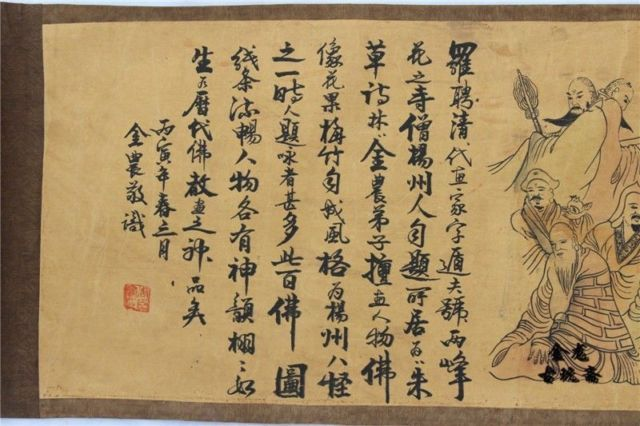 羅聘清代画家字遁夫號两峰
花之寺僧楊州人自題所居为朱
草诗林金農弟子擅画人物佛
像花果梅竹自成風格为楊州八怪
之一時人題咏者甚多此百佛圖
线条流暢人物各有神韻栩々如
生为曆代佛教画之神品矣
丙寅年春三月
金農敬識